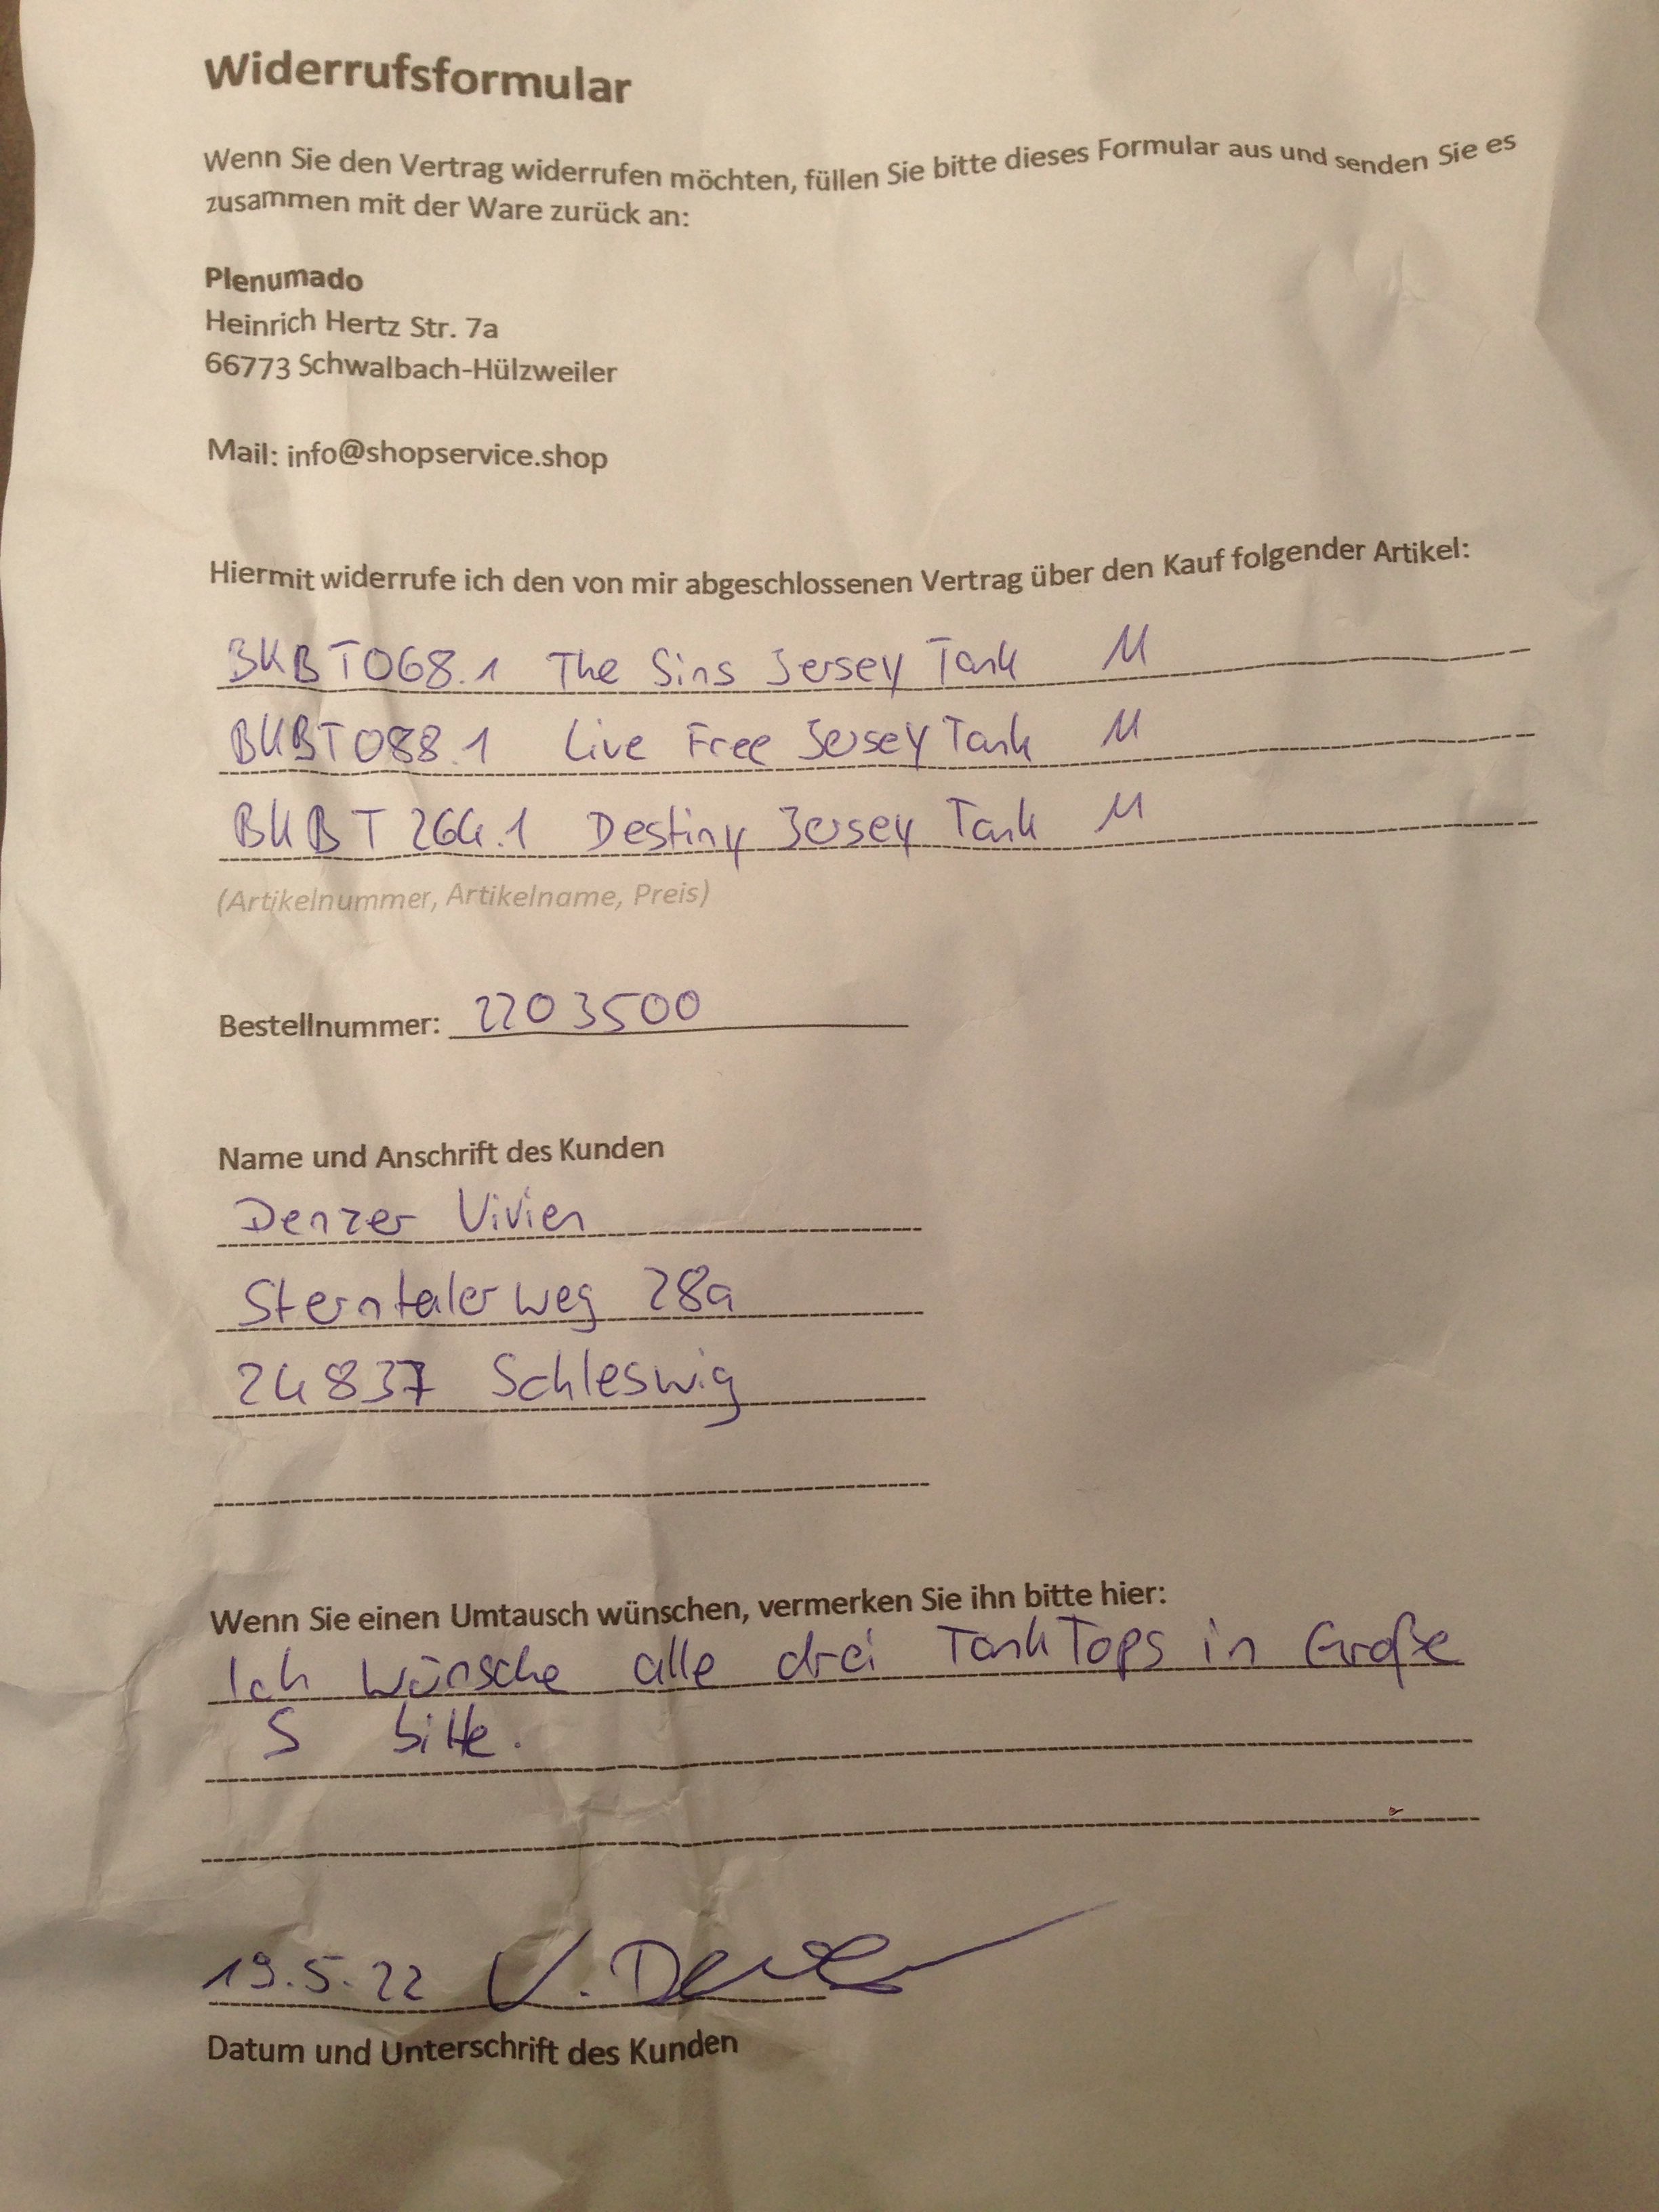 Widerrufsformular
Wenn Sie den Vertrag widerrufen möchten, füllen Sie bitte dieses Formular aus und senden Sie es
zusammen mit der Ware zurück an:
Plenumado
Heinrich Hertz Str. 7a
66773 Schwalbach-Hülzweiler
Mail: info@shopservice.shop
Hiermit widerrufe ich den von mir abgeschlossenen Vertrag über den Kauf folgender Artikel:
BKBT068.1 The Sins Jersey Tank M
BKBT088.1 Live Free Jersey Tank M
BKBT264.1 Destiny Jersey Tank M
(Artikelnummer, Artikelname, Preis)
Bestellnummer: 2203500
Name und Anschrift des Kunden
Denzer Vivien
Sterntalerweg 28a
24837 Schleswig
Wenn Sie einen Umtausch wünschen, vermerken Sie ihn bitte hier:
Ich wünsche alle drei Tank Tops in Größe
S bitte.
19.5.22 V. Denzer
Datum und Unterschrift des Kunden